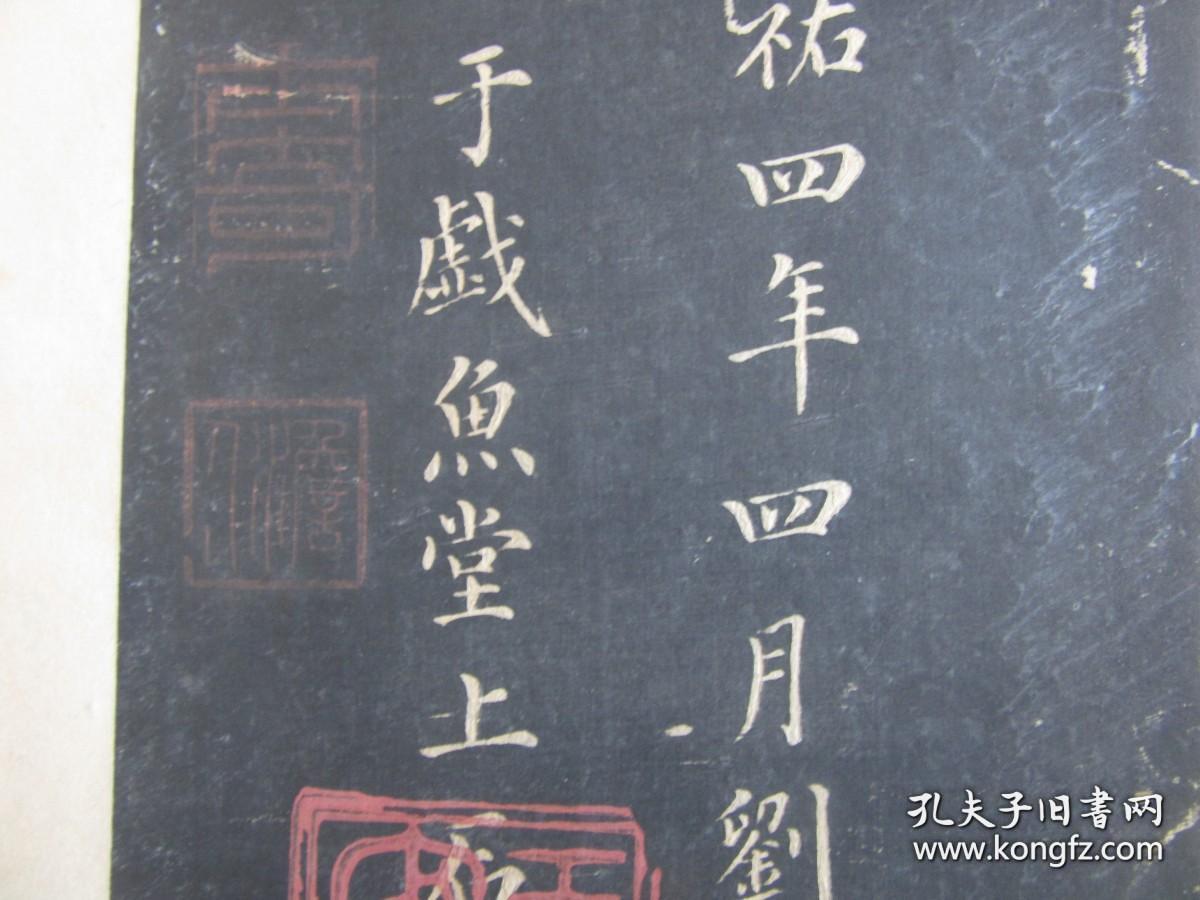 祐四年四月劉
于戯魚堂上石
孔夫子旧書网
www.kongfz.com